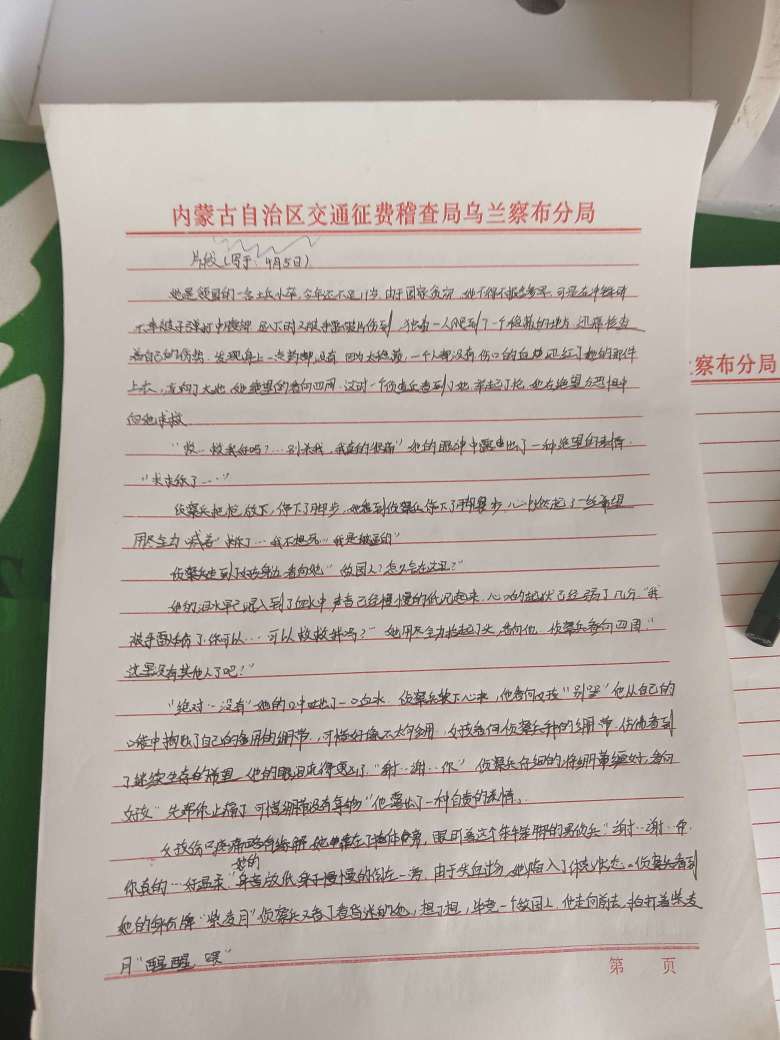 内蒙古自治区交通征费稽查局乌兰察布分局
片段(写于:4月5日)
她是敌国的一名士兵小草,今年还不足17岁,由于国家贫穷,她不得不报名参军,可是在冲锋时
不幸被子弹打中腹部,又被手雷破片伤到,独自一人爬到了一个隐蔽的地方,
着自己的伤势,发现身上一点药都没有,因为太隐蔽,一个人都没有,伤口的血染红了她的
上衣,流向了大地,她绝望的看向四周,这时一个侦查兵看到了她,举起了枪,她在绝望与恐惧中
向他求救
"救…救我好吗?…别杀我,我真的很痛"她的眼神中露出了一种绝望的表情.
"求求你了…"
侦察兵把枪放下,停下了脚步,她看到侦察兵停下了脚步,心中燃起了一丝希望
用尽全力喊着"求你了…我不想死,我是被逼的"
侦察兵走到了女孩身边,看向她"敌国人?怎么会在这里?"
她的泪水早已混入到了血水中,声音已经慢慢的低沉起来,心口的起伏已经弱了几分"我
被手雷炸伤了,你可以…可以救救我吗?"她用尽全力抬起了头,看向他,侦察兵看向四周."
这里没有其他人了吧?"
"绝对…没有"她的口中吐出了一口血水.侦察兵软下心来,他看向女孩"别哭"他从自己的
口袋中掏出了自己的备用的绷带,可惜好像不太够用,女孩看向侦察兵的绷带,仿佛看到
了继续生存的希望,她的眼泪流得更凶了."谢…谢…你"侦察兵仔细的将绷带缠好,看向
女孩"先帮你止痛了,可惜绷带没有带够"他露出了一种自责的表情。
女孩伤口疼痛略有缓解,眼盯着这个笨手笨脚的男侦兵"谢…谢…你
她的
你真的…好温柔"声音放低,身子慢慢的倒在一旁,由于失血过多,她陷入了休克状态。侦察兵看到
她的身份牌"紫夜月"侦察兵又看了看昏迷的她,想了想,毕竟一个敌国人,他走向前去,拍打着紫夜
月"醒醒,喂"
第 页
察布分局